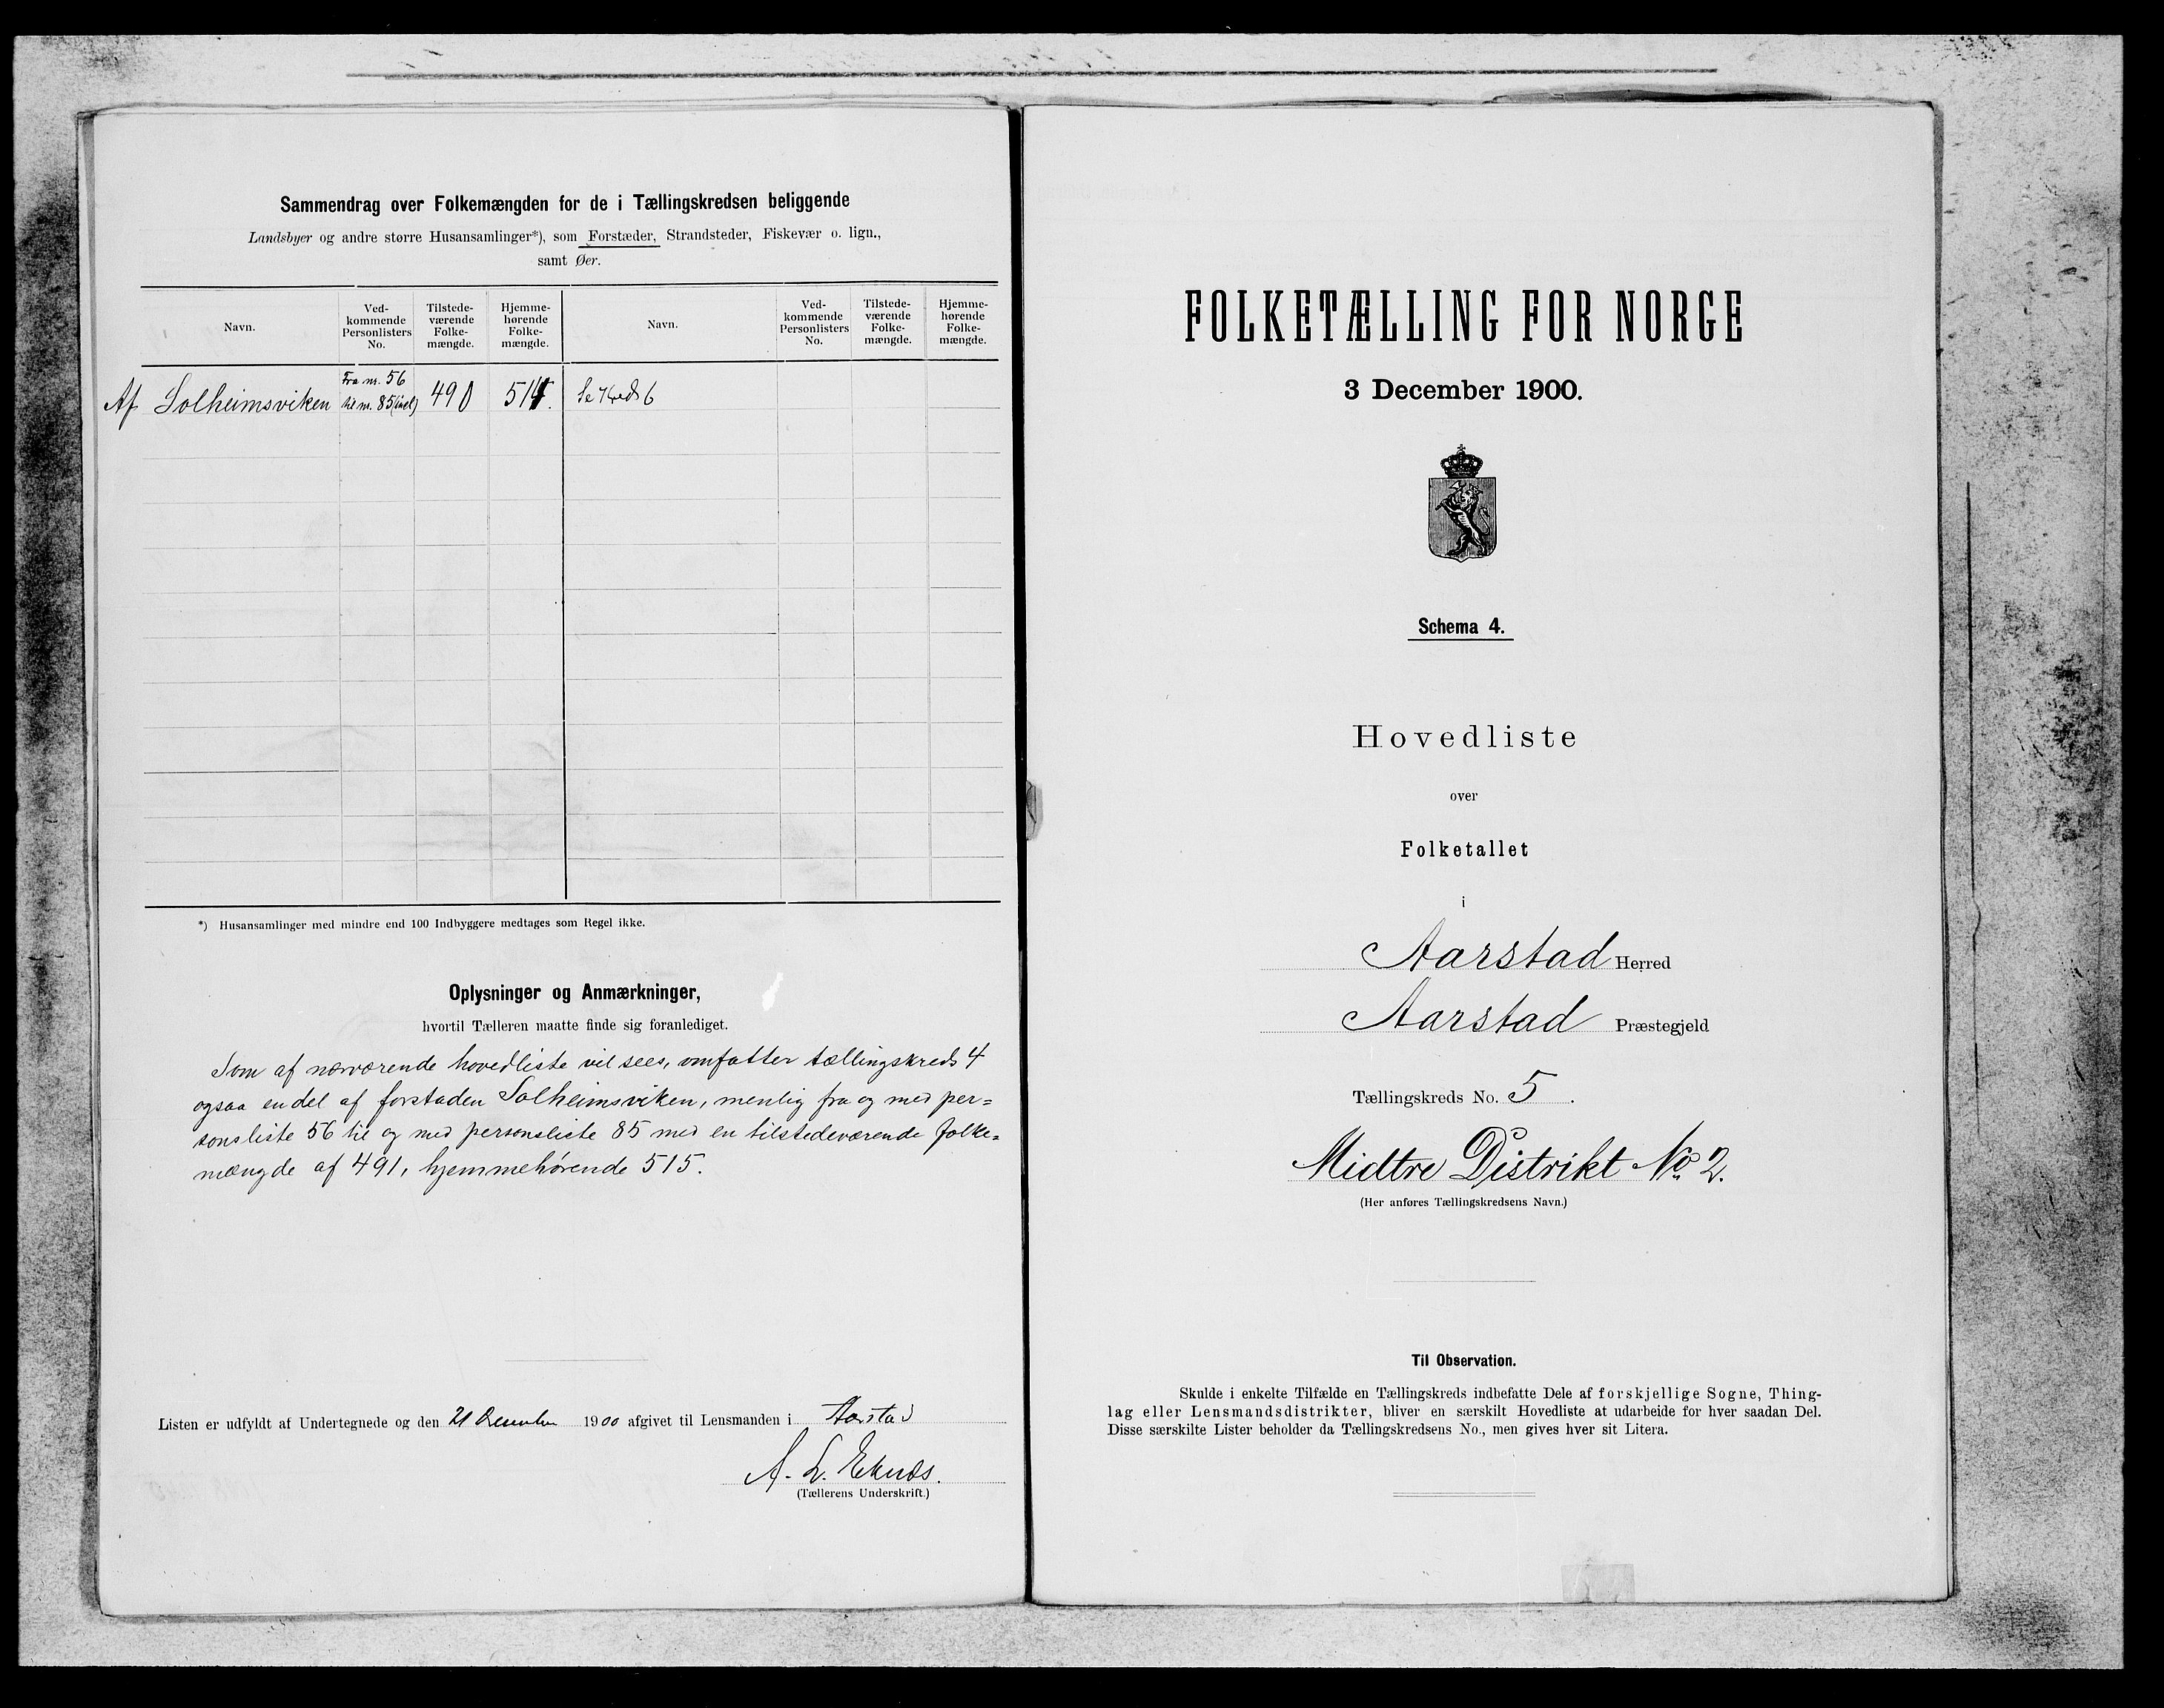 Sammendrag over Folkemængden for de i Tællingskredsen beliggende
Landsbyer og andre større Husansamlinger*), som Forstæder, Strandsteder, Fiskevær o. lign.,
samt Øer.
Navn. Ved-kommende Personlisters No. Tilstede-værende Folke-mængde. Hjemme-hørende Folke-mængde. Navn. Ved-kommende Personlisters No. Tilstede-værende Folke-mængde. Hjemme-hørende Folke-mængde.
Fra nr. 56
Af Solheimsviken til nr. 85 (incl) 490 514. Se Kreds 6
*) Husansamlinger med mindre end 100 Indbyggere medtages som Regel ikke.
Oplysninger og Anmærkninger,
hvortil Tælleren maatte finde sig foranlediget.
Som af nærværende hovedliste vil sees, omfatter tællingskreds 4
ogsaa en del af forstaden Solheimsviken, menlig fra og med per=
sonsliste 56 til og med personsliste 85 med en tilstedeværende folke=
mængde af 491, hjemmehörende 515.
Listen er udfyldt af Undertegnede og den 21 December 1900 afgivet til Lensmanden i Aarstad
A. L. Eknæs.
(Tællerens Underskrift.)
FOLKETÆLLING FOR NORGE
3 December 1900.
Schema 4.
Hovedliste
over
Folketallet
i
Aarstad Herred
Aarstad Præstegjeld
Tællingskreds No. 5.
Midtre Distrikt No 2.
(Her anføres Tællingskredsens Navn.)
Til Observation.
Skulde i enkelte Tilfælde en Tællingskreds indbefatte Dele af forskjellige Sogne, Thing-
lag eller Lensmandsdistrikter, bliver en særskilt Hovedliste at udarbeide for hver saadan Del.
Disse særskilte Lister beholder da Tællingskredsens No., men gives hver sit Litera.